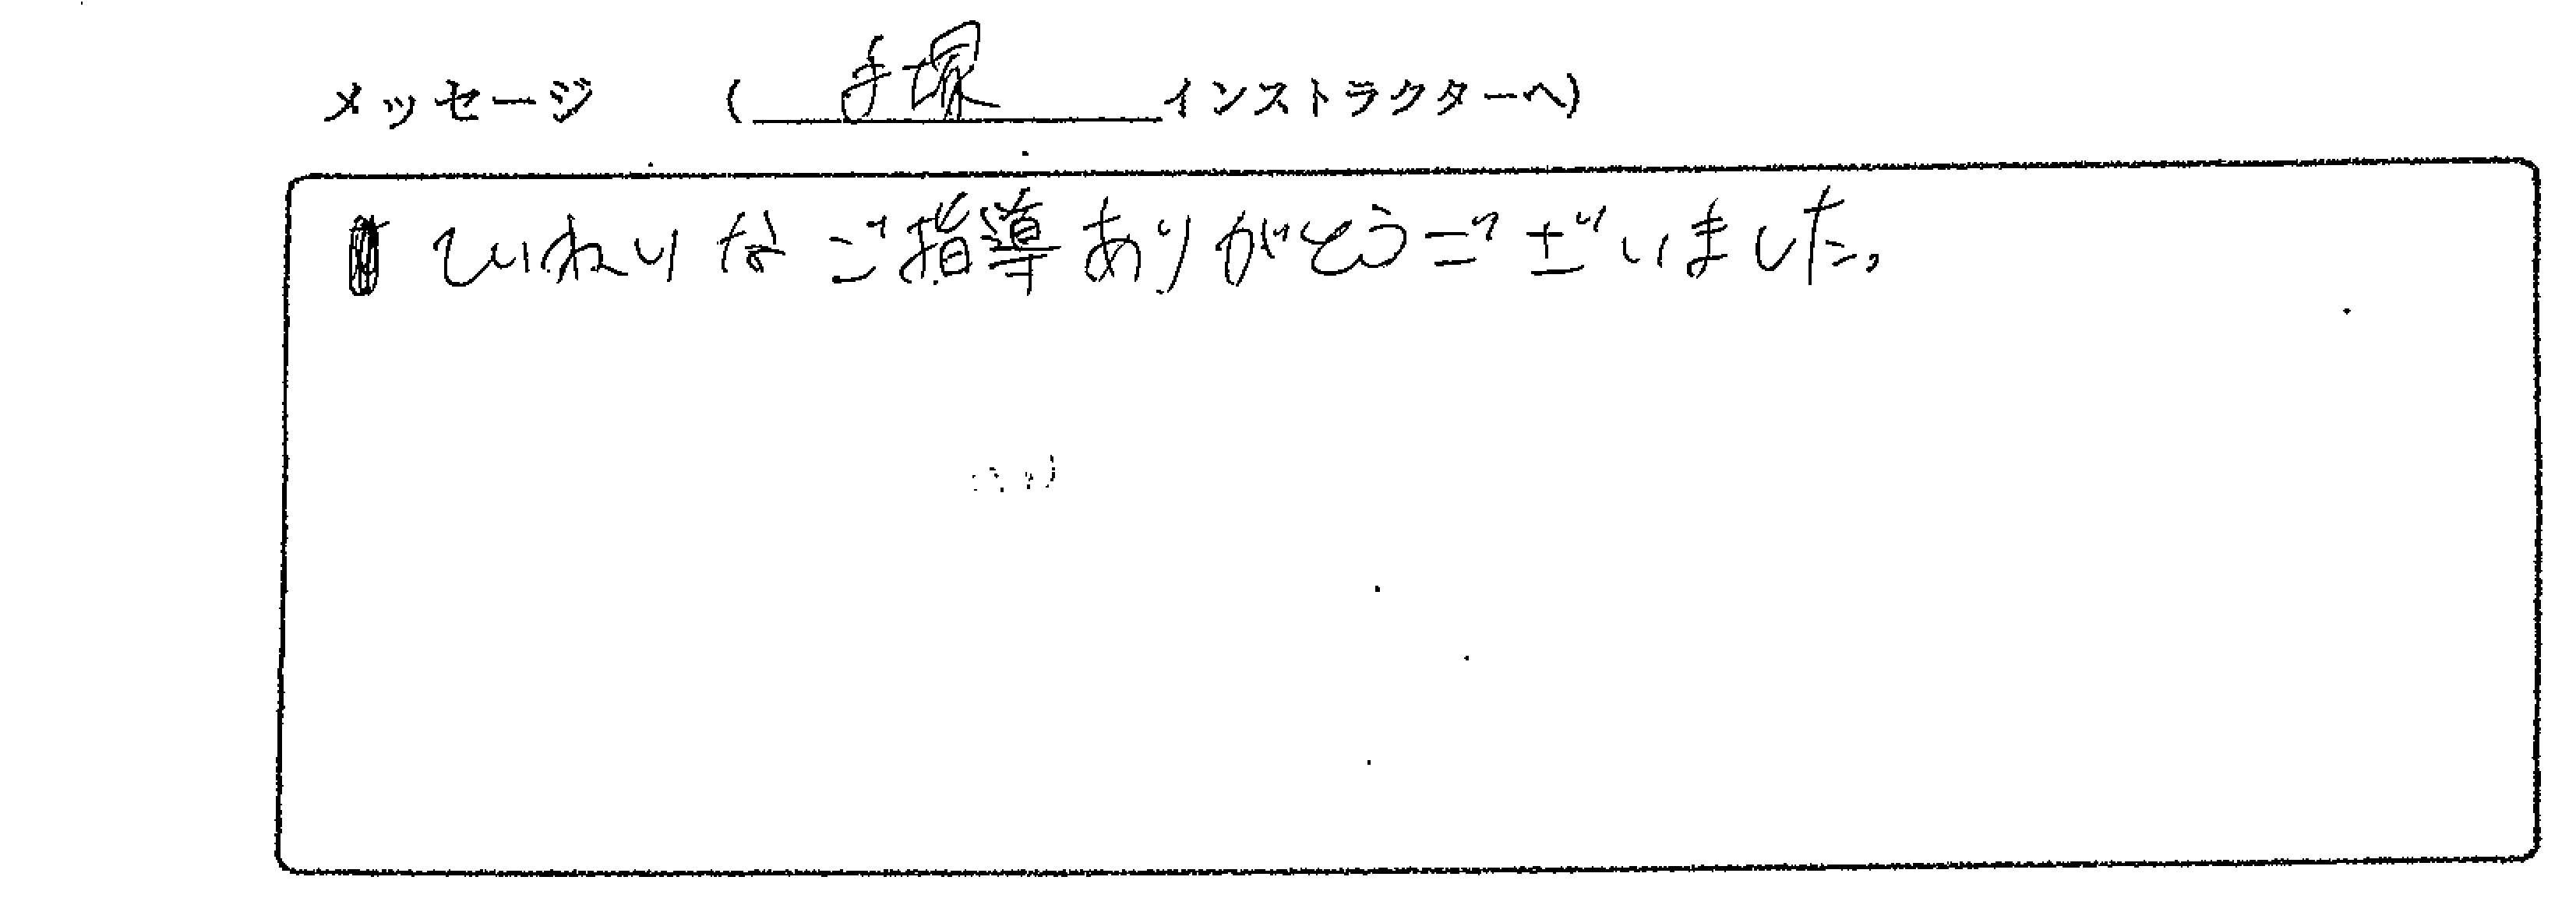 メッセージ （手塚インストラクターへ）
ていねいなご指導ありがとうございました。